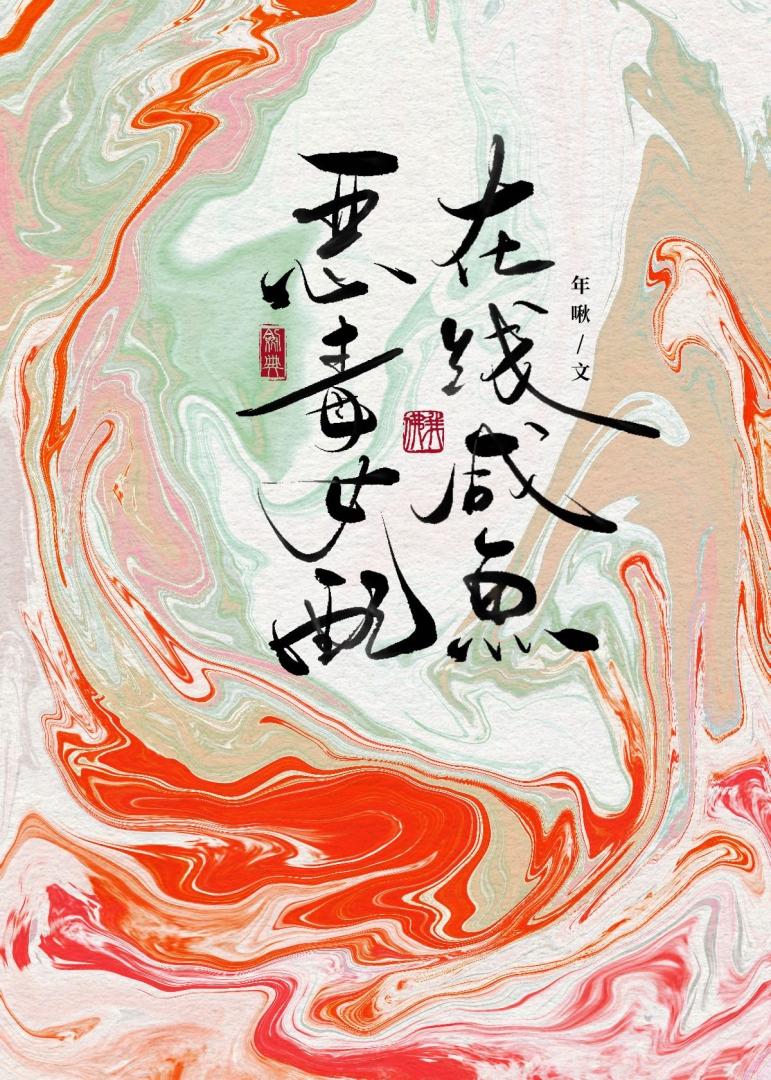 年啾/文
在线咸鱼
恶毒女配